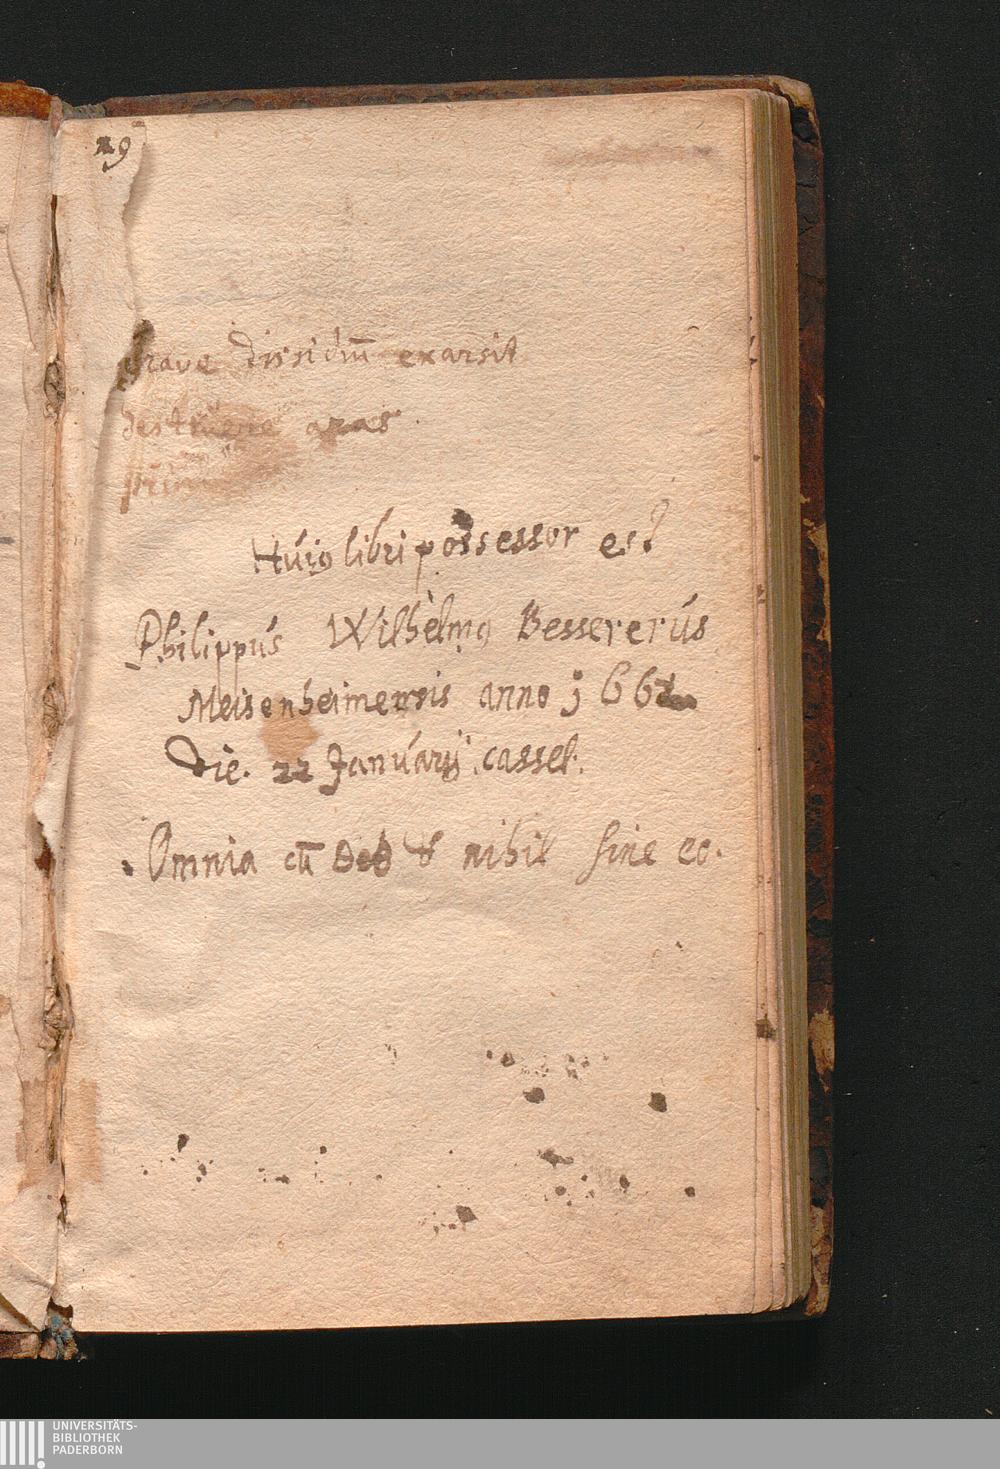 29
grave dissidiū exarsit
destruere aras
Huiꝯ libri possessor est
Philippús Wilhelmꝯ Bessererús
Meisenheimensis anno 166
Die. 22 Januarij cassel.
Omnia cū Deo & nihil sine eo.
UNIVERSITÄTS-
BIBLIOTHEK
PADERBORN